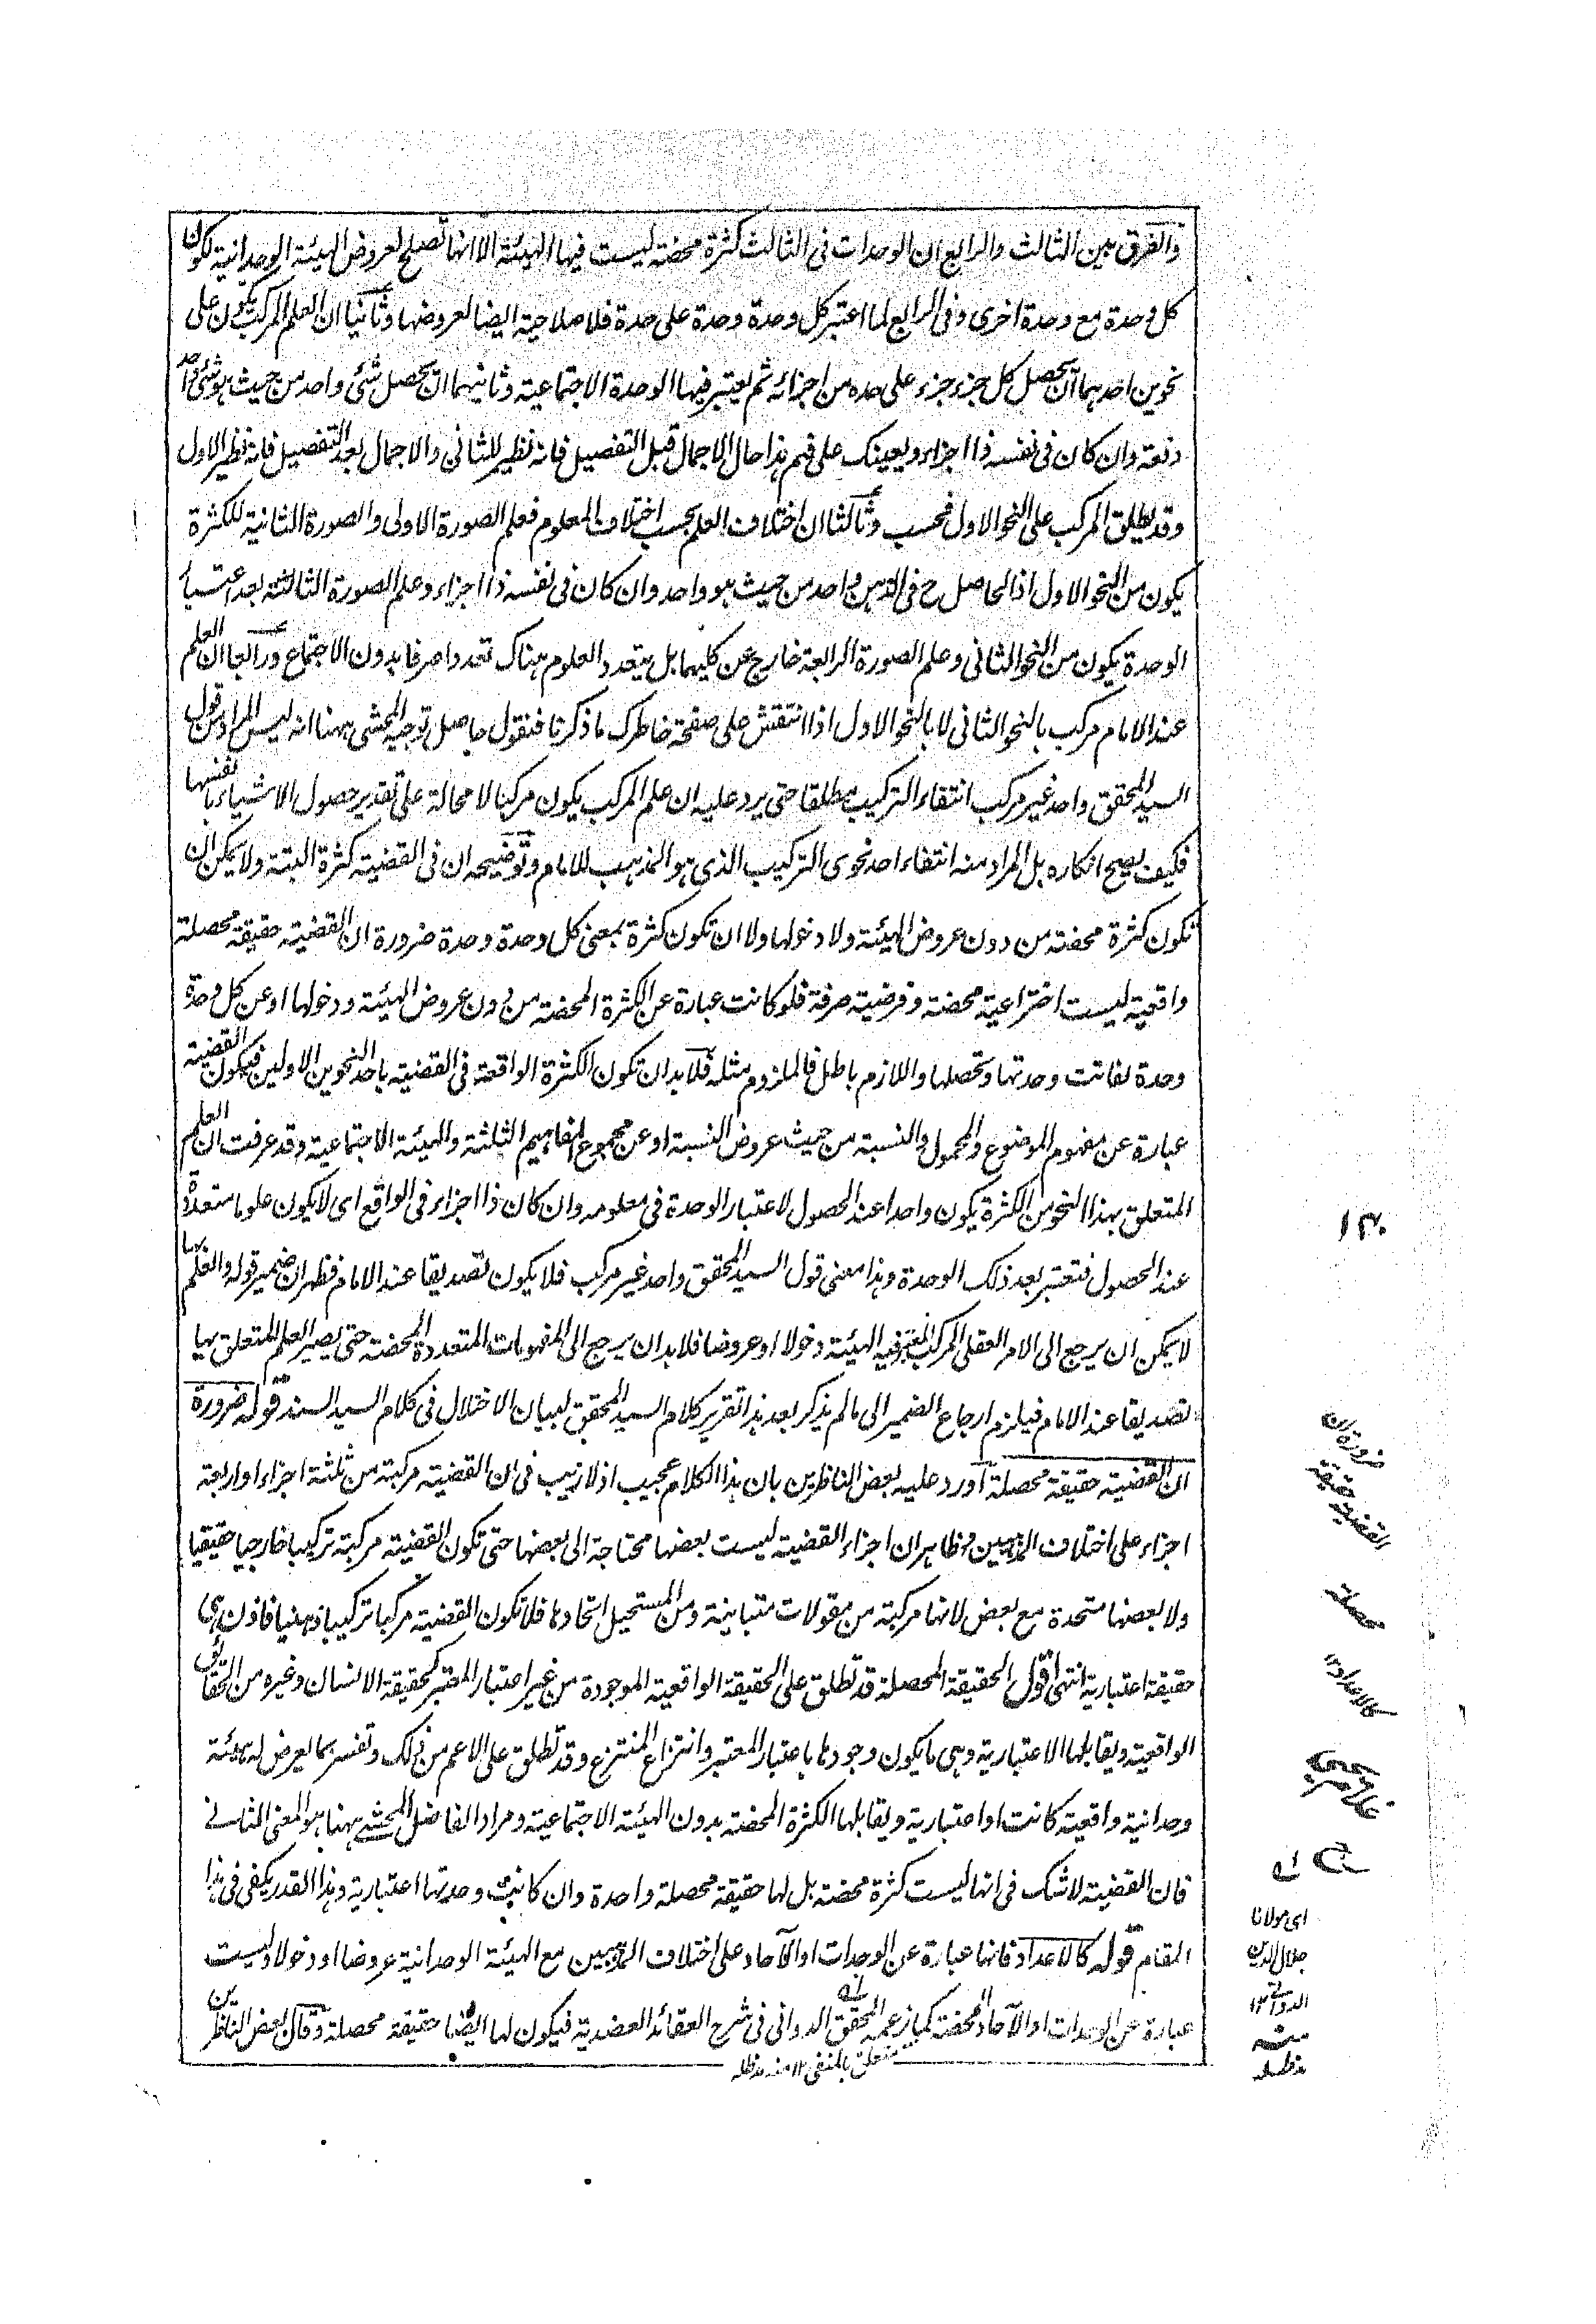 والفرق بين الثالث والرابع ان الوحدات فى الثالث كثرة محضة ليست فيها الهيئة الا انها تصلح لعروض الهيئة الوحدانية لكون
كل وحدة مع وحدة اخرى وفى الرابع لما اعتبر كل وحدة وحدة على حدة فلا صلاحية ايضا لعروضها وثانيا ان العلم المركب يكون على
نحوين احدهما ان يحصل كل جزء جزء على حده من اجزائه ثم يعتبر فيها الوحدة الاجتماعية وثانيهما ان يحصل شئ واحد من حيث هو شئ واحد
دفعة وان كان فى نفسه ذا اجزاء ويعينك على فهم هذا حال الاجمال قبل التفصيل فانه نظير للثانى والاجمال بعد التفصيل فانه نظير الاول
وقد يطلق المركب على النحو الاول فحسب وثالثا ان اختلاف العلم بحسب اختلاف المعلوم فعلم الصورة الاولى والصورة الثانية للكثرة
يكون من النحو الاول اذ الحاصل ح فى الذهن واحد من حيث هو واحد وان كان فى نفسه ذا اجزاء وعلم الصورة الثالثة بعد اعتبار
الوحدة يكون من النحو الثانى وعلم الصورة الرابعة خارج عن كليهما بل يتعدد العلوم هناك تعددا صرفا بدون الاجتماع ورابعا ان العلم
عند الامام مركب بالنحو الثانى لا بالنحو الاول اذا انتقش على صفحة خاطرك ما ذكرنا فنقول حاصل توجيه المحشى ههنا انه ليس المراد من قول
السيد المحقق واحد غير مركب انتفاء التركيب مطلقا حتى يرد عليه ان علم المركب يكون مركبا لا محالة على تقدير حصول الاشياء بانفسها
فكيف يصح انكاره بل المراد منه انتفاء احد نحوى التركيب الذى هو المذهب للامام وتوضيحه ان فى القضية كثرة البتة ولا يمكن ان
تكون كثرة محضة من دون عروض الهيئة ولا دخولها ولا ان تكون كثرة بمعنى كل وحدة وحدة ضرورة ان القضية حقيقة محصلة
واقعية ليست اختراعية محضة وفرضية صرفة فلو كانت عبارة عن الكثرة المحضة من دون عروض الهيئة ودخولها او عن كل وحدة
وحدة لفاتت وحدتها وتحصلها واللازم باطل فالملزوم مثله فلا بد ان تكون الكثرة الواقعة فى القضية باحد النحوين الاولين فيكون القضية
عبارة عن مفهوم الموضوع والمحمول والنسبة من حيث عروض النسبة او عن مجموع المفاهيم الثلثة والهيئة الاجتماعية وقد عرفت ان العلم
المتعلق بهذا النحو من الكثرة يكون واحدا عند الحصول لاعتبار الوحدة فى معلومه وان كان ذا اجزاء فى الواقع اى لا يكون علوما متعددة
عند الحصول فتعتبر بعد ذلك الوحدة وهذا معنى قول السيد المحقق واحد غير مركب فلا يكون تصديقا عند الامام فظهر ان ضمير قوله والعلم بها
لا يمكن ان يرجع الى الامر العقلى المركب المعتبر فيه الهيئة دخولا او عروضا فلا بد ان يرجع الى المفهومات المتعددة المحضة حتى يصير العلم المتعلق بها
تصديقا عند الامام فيلزم ارجاع الضمير الى ما لم يذكر بعد هذا تقرير كلام السيد المحقق لبيان الاختلال فى كلام السيد السند قوله ضرورة
ان القضية حقيقة محصلة اورد عليه بعض الناظرين بان هذا الكلام عجيب اذ لا ريب فى ان القضية مركبة من ثلثة اجزاء او اربعة
اجزاء على اختلاف المذهبين وظاهر ان اجزاء القضية ليست بعضها محتاجة الى بعضها حتى تكون القضية مركبة تركيبا خارجيا حقيقيا
ولا بعضها متحدة مع بعض لانها مركبة من مقولات متباينة ومن المستحيل اتحادها فلا تكون القضية مركبا تركيبا ذهنيا فاذن هى
حقيقة اعتبارية انتهى اقول الحقيقة المحصلة قد تطلق على الحقيقة الواقعية الموجودة من غير اعتبار المعتبر كحقيقة الانسان وغيره من الحقائق
الواقعية ويقابلها الاعتبارية وهى ما يكون وجودها باعتبار المعتبر وانتزاع المنتزع وقد تطلق على الاعم من ذلك وتفسر بما يعرض له هيئة
وحدانية واقعية كانت او اعتبارية ويقابلها الكثرة المحضة بدون الهيئة الاجتماعية ومراد الفاضل المحشى ههنا هو المعنى الثانى
فان القضية لا شك فى انها ليست كثرة محضة بل لها حقيقة محصلة واحدة وان كانت وحدتها اعتبارية وهذا القدر يكفى فى هذا
المقام قوله كالاعداد فانها عبارة عن الوحدات او الآحاد على اختلاف المذهبين مع الهيئة الوحدانية عروضا او دخولا وليست
عبارة عن الوحدات او الآحاد المحضة كما زعمه المحقق الدوانى فى شرح العقائد العضدية فيكون لها ايضا حقيقة محصلة وقال بعض الناظرين
متعلق بالمنفى ١٢ منه مدظله
١٣٠
ضرورة ان
القضية حقيقة
محصلة
كالاعداد ١٢
اى مولانا
جلال الدين
الدوانى ١٢
منه
مدظله